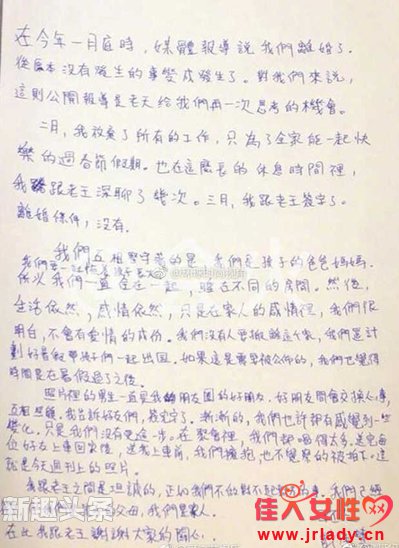 在今年一月底時，媒體報導說我們離婚了。
從原本沒有發生的事變成發生了。對我們來說，
這則公開報導是老天給我們再一次思考的機會。
二月，我放棄了所有的工作，只為了全家能一起快
樂的過春節假期。也在這麼長的休息時間裡，
我跟老王深聊了幾次。三月，我跟老王簽字了。
離婚條件，沒有。
我們互相堅守著的是，我們是孩子的爸爸媽媽。
我們要一起陪著孩子長大
所以我們一直住在一起，睡在不同的房間。然後，
生活依然，感情依然，只是在家人的感情裡，我們很
明白，不會有愛情的成份。我們沒有人曾搬離這個家，我們是計
劃好暑假帶孩子們一起出國。如果這是需要被公佈的，我們也覺得
時間是在暑假過了之後。
照片裡的男生一直是我的朋友圈的好朋友。好朋友間會交換心事，
互相照顧。我告訴好友們，簽完字了。漸漸的，我們也許都有感覺到一些
變化。只是我們沒有更進一步。在聚會裡，我們都喝個太多，送完每
位好友上車回家後，送我上車前，我們擁抱，也不覺累的被拍下。這
就是今週刊上的照片。
我跟老王之間是坦誠的，
父母，我們是家人。
在此我跟老王謝謝大家的關心。
新趣头条
佳人女性网
www.jrlady.cn